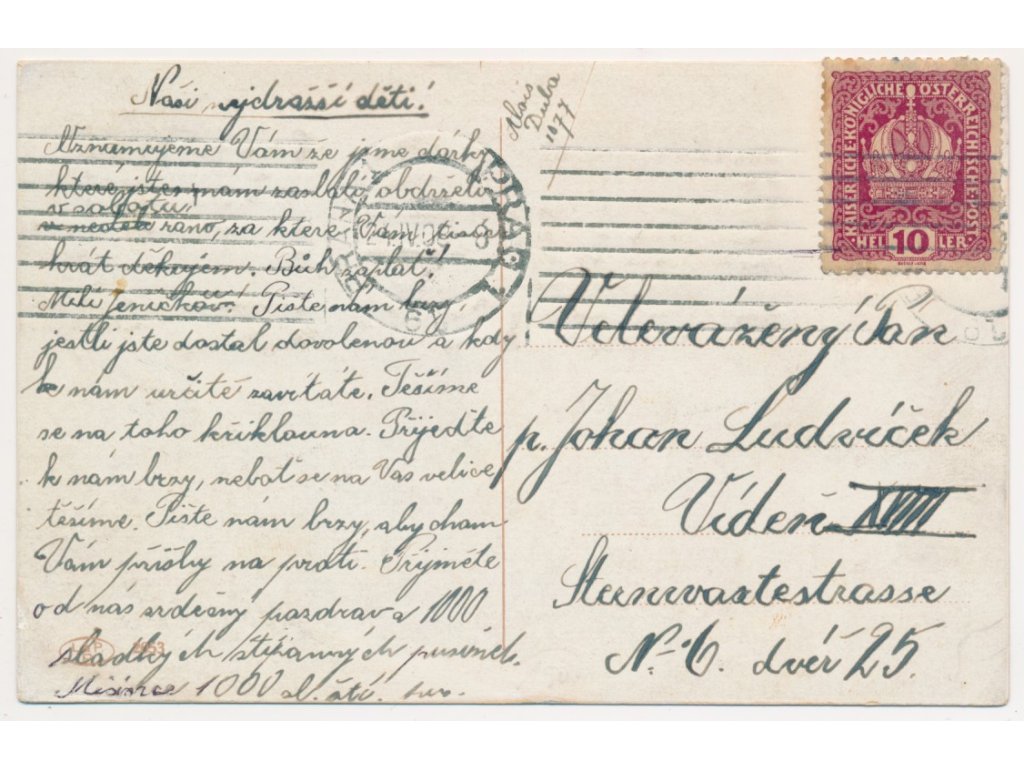 Naši nejdražší děti!
Vznamujeme Vám že jsme dárky
které jste nám zaslali obdrželi
v sobotu
v neděli ráno, za které Vám tisíc
krát děkujem. Bůh zaplať!
Milí Jeníčkou! Piste nam brzy
jestli jste dostal dovolenou a kdy
k nám určité zavítáte. Těšíme
se na toho křiklouna. Přijeďte
k nám brzy, neboť se na Vás velice
těšíme. Pište nám brzy, aby chom
Vám přišly na proti. Přijměte
od nás srdečný pozdrav a 1000
sladkých
1000
2953
Alois
Duba
1077
KAISERLICHE KÖNIGLICHE ÖSTERREICHISCHE POST
HELLER
10
PRAG
Velevážený Pán
p. Johan Ludvíček
Vídeň XVIII
Sternwartestrasse
No 6. dvéř 25.